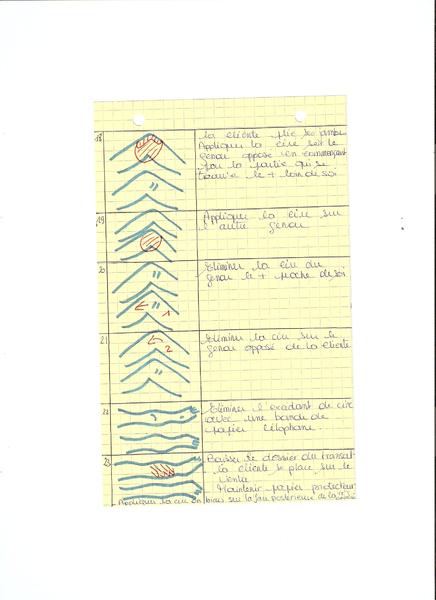 18
la cliente plie ses jambes
Appliquer la cire soit le
genou opposé en commençant
par la partie qui se
trouve le + loin de soi
19
Appliquer la cire sur
l'autre genou
20
Eliminer la cire du
genou le + proche de soi
1
21
Eliminer la cire sur le
genou opposé de la cliente
2
22
Eliminer l'exédant de cire
avec une bande de
papier célophane.
23
Baisser le dossier du transat
la cliente se place sur le
ventre
Maintenir papier protecteur
Appliquer la cire en biais sur la face postérieure de la